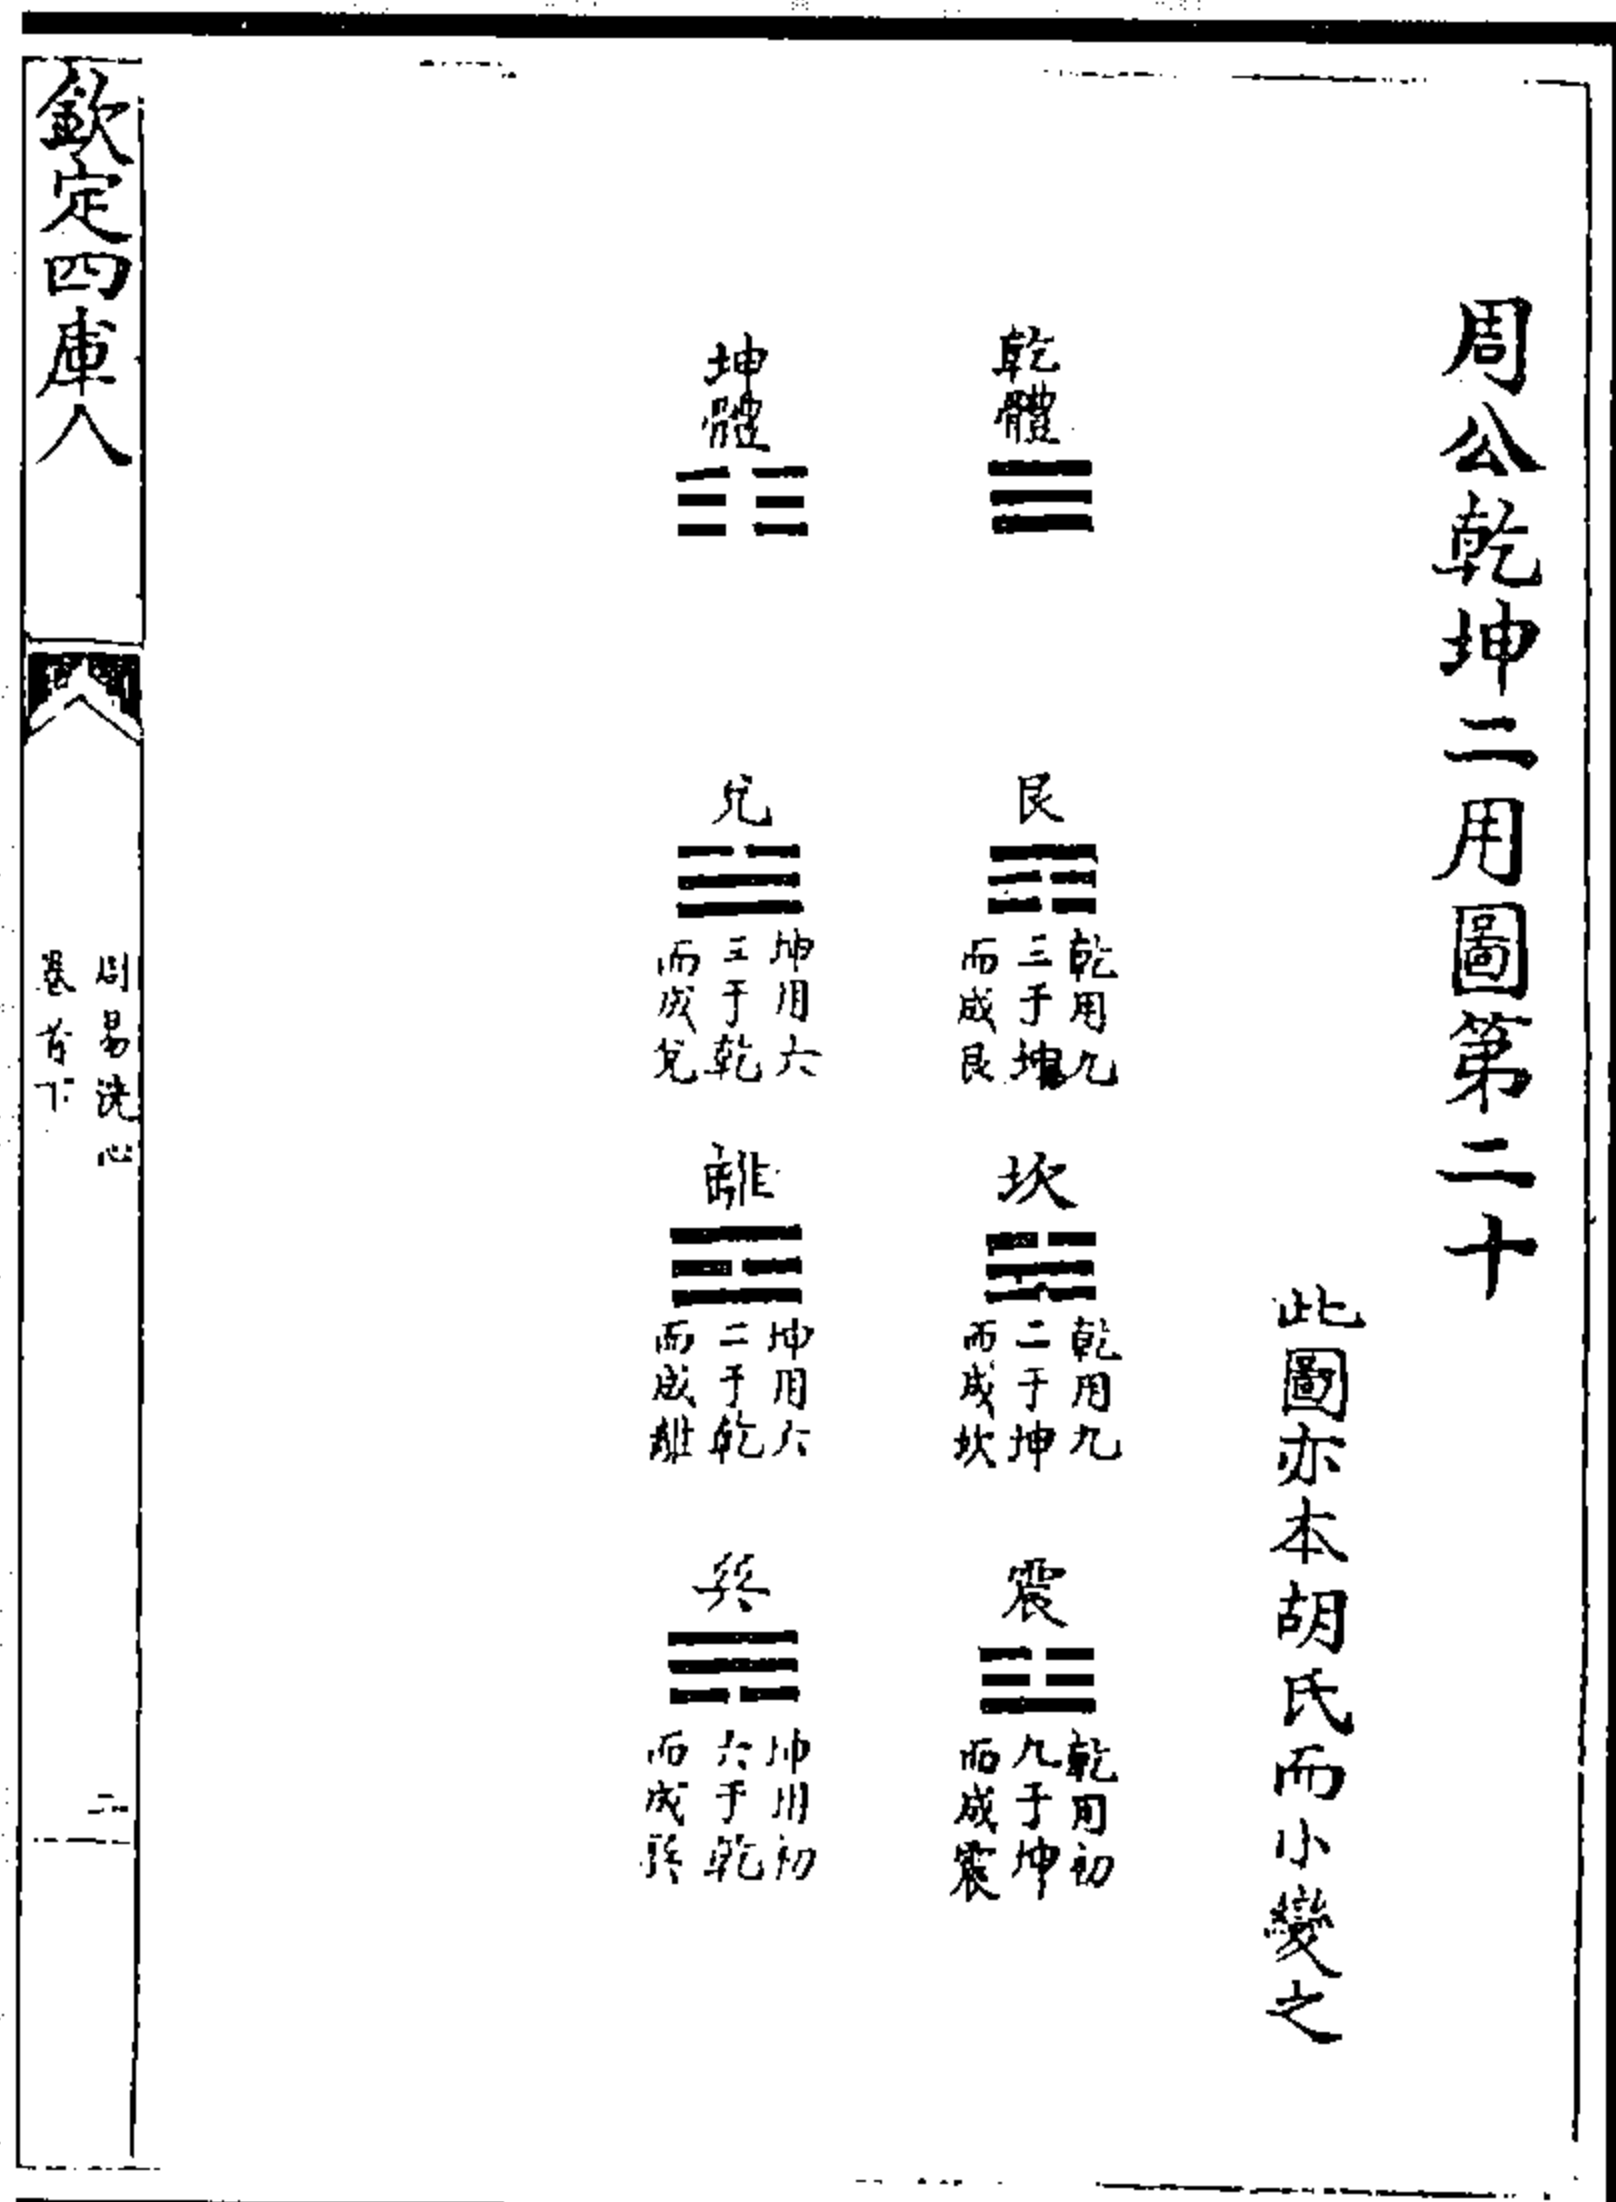 周公乾坤二用圖第二十
此圖亦本胡氏而小變之
乾體
艮
乾用九
三于坤
而成艮
坎
乾用九
二于坤
而成坎
震
乾用初
九于坤
而成震
坤體
兌
坤用六
三于乾
而成兌
離
坤用六
二于乾
而成離
巽
坤用初
六于乾
而成巽
欽定四庫
周易洗心
卷首下